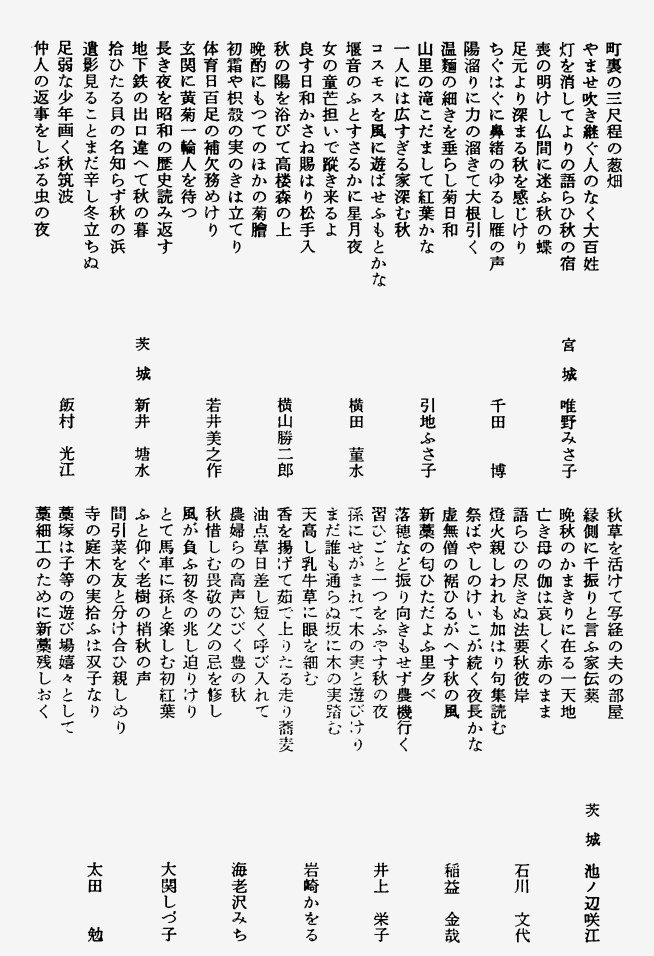 町裏の三尺程の葱畑
やませ吹き継ぐ人のなく大百姓
灯を消してよりの語らひ秋の宿
宮城 唯野みさ子
喪の明けし仏間に迷ふ秋の蝶
足元より深まる秋を感じけり
ちぐはぐに鼻緒のゆるし雁の声
千田 博
陽溜りに力の溜きて大根引く
温麺の細きを垂らし菊日和
山里の滝こだまして紅葉かな
引地ふさ子
一人には広すぎる家深む秋
コスモスを風に遊ばせふもとかな
堰音のふとすさるかに星月夜
横田 菫水
女の童芒担いで蹤き来るよ
良す日和かさね賜はり松手入
秋の陽を浴びて高楼森の上
横山勝二郎
晩酌にもつてのほかの菊膾
初霜や枳殻の実のきは立てり
体育日百足の補欠務めけり
若井美之作
玄関に黄菊一輪人を待つ
長き夜を昭和の歴史読み返す
地下鉄の出口違へて秋の暮
茨城 新井 塘水
拾ひたる貝の名知らず秋の浜
遺影見ることまだ辛し冬立ちぬ
足弱な少年画く秋筑波
飯村 光江
仲人の返事をしぶる虫の夜
秋草を活けて写経の夫の部屋
縁側に千振りと言ふ家伝薬
茨城 池ノ辺咲江
晩秋のかまきりに在る一天地
亡き母の伽は哀しく赤のまま
語らひの尽きぬ法要秋彼岸
石川 文代
燈火親しわれも加はり句集読む
祭ばやしのけいこが続く夜長かな
虚無僧の裾ひるがへす秋の風
稲益 金哉
新藁の匂ひただよふ里夕べ
落穂など振り向きもせず農機行く
習ひごと一つをふやす秋の夜
井上 栄子
孫にせがまれて木の実と遊びけり
まだ誰も通らぬ坂に木の実踏む
天高し乳牛草に眼を細む
岩崎かをる
香を揚げて茹で上りたる走り蕎麦
油点草日差し短く呼び入れて
農婦らの高声ひびく豊の秋
海老沢みち
秋惜しむ畏敬の父の忌を修し
風が負ふ初冬の兆し迫りけり
とて馬車に孫と楽しむ初紅葉
大関しづ子
ふと仰ぐ老樹の梢秋の声
間引菜を友と分け合ひ親しめり
寺の庭木の実拾ふは双子なり
太田 勉
藁塚は子等の遊び場嬉々として
藁細工のために新藁残しおく